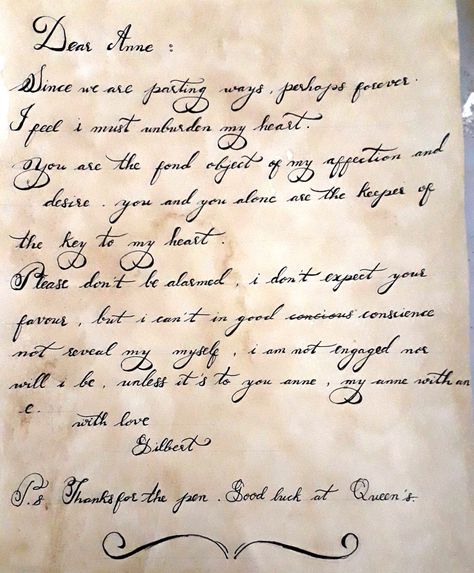 Dear Anne :
Since we are parting ways, perhaps forever.
I feel i must unburden my heart.
You are the fond object of my affection and
desire. you and you alone are the keeper of
the key to my heart.
Please don't be alarmed, i don't expect your
favour, but i can't in good concious conscience
not reveal my myself, i am not engaged nor
will i be, unless it's to you anne, my anne with an
e.
with love
Gilbert
P.s Thanks for the pen. Good luck at Queen's.